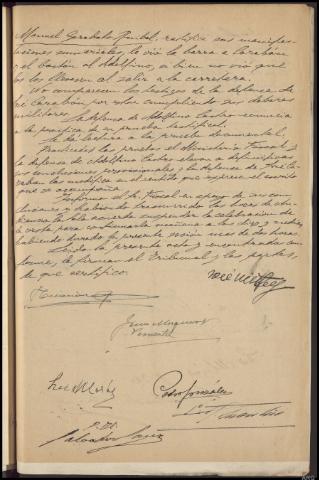 Manuel Garabato Rial, ratifica sus manifes-
taciones sumariales, le vió la barra a Carabán
y el bastón al Adolfino, si bien no vió que
los los llevasen al salir a la carretera.
No comparecen los testigos de la defensa de
Carabán por estar cumpliendo sus deberes
militares. La defensa de Adolfino Castro renuncia
a la practica de su prueba testifical.
Se da lectura a la prueba documental.
Practicadas las pruebas el Ministerio Fiscal y
la defensa de Adolfino Castro elevan a definitivas
sus conclusiones provisionales y la defensa de
las modifica en el sentido que expresa el escrito
que se acompaña.
Informa el Sr. Fiscal en apoyo de sus con-
clusiones y habiendo transcurrido las horas de au-
diencia la Sala acuerda suspender la celebración de
la vista, para continuarla mañana a las diez y media,
habiendo durado la presente sesión mas de dos horas.
Leida la presente acta y encontrandola con-
forme, la firman el Tribunal y las partes,
de que certifico.
José
Pimentel
Luis
Pedro González
P. D.
Salvador